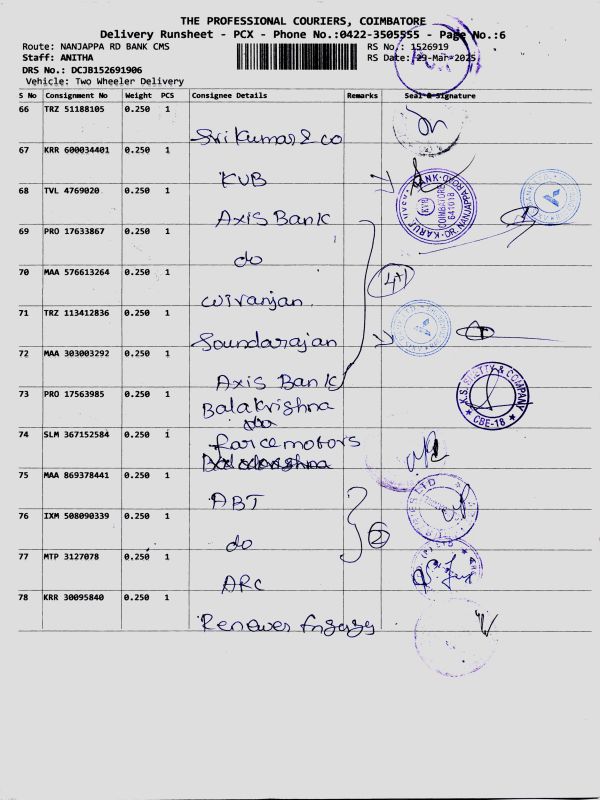 THE PROFESSIONAL COURIERS, COIMBATORE
Delivery Runsheet - PCX - Phone No.:0422-3505555 - Page No.:6
Route: NANJAPPA RD BANK CMS RS No.: 1526919
Staff: ANITHA RS Date: 29-Mar-2025
DRS No.: DCJB152691906
Vehicle: Two Wheeler Delivery
S No Consignment No Weight PCS Consignee Details Remarks Seal & Signature
66 TRZ 51188105 0.250 1
Sri Kumar & co
67 KRR 600034401 0.250 1
KVB
68 TVL 4769020 0.250 1
Axis Bank
69 PRO 17633867 0.250 1
do
70 MAA 576613264 0.250 1
4+1
71 TRZ 113412836 0.250 1
Soundarajan
72 MAA 303003292 0.250 1
Axis Bank
73 PRO 17563985 0.250 1
Balakrishna
K.S. SHETTY & COMPANY
CBE-18
74 SLM 367152584 0.250 1
farce motors
75 MAA 869378441 0.250 1
ABT
76 IXM 508090339 0.250 1
do
2
77 MTP 3127078 0.250 1
ARC
78 KRR 30095840 0.250 1
KVB
COIMBATORE
641018
DR. NANJAPPA ROAD